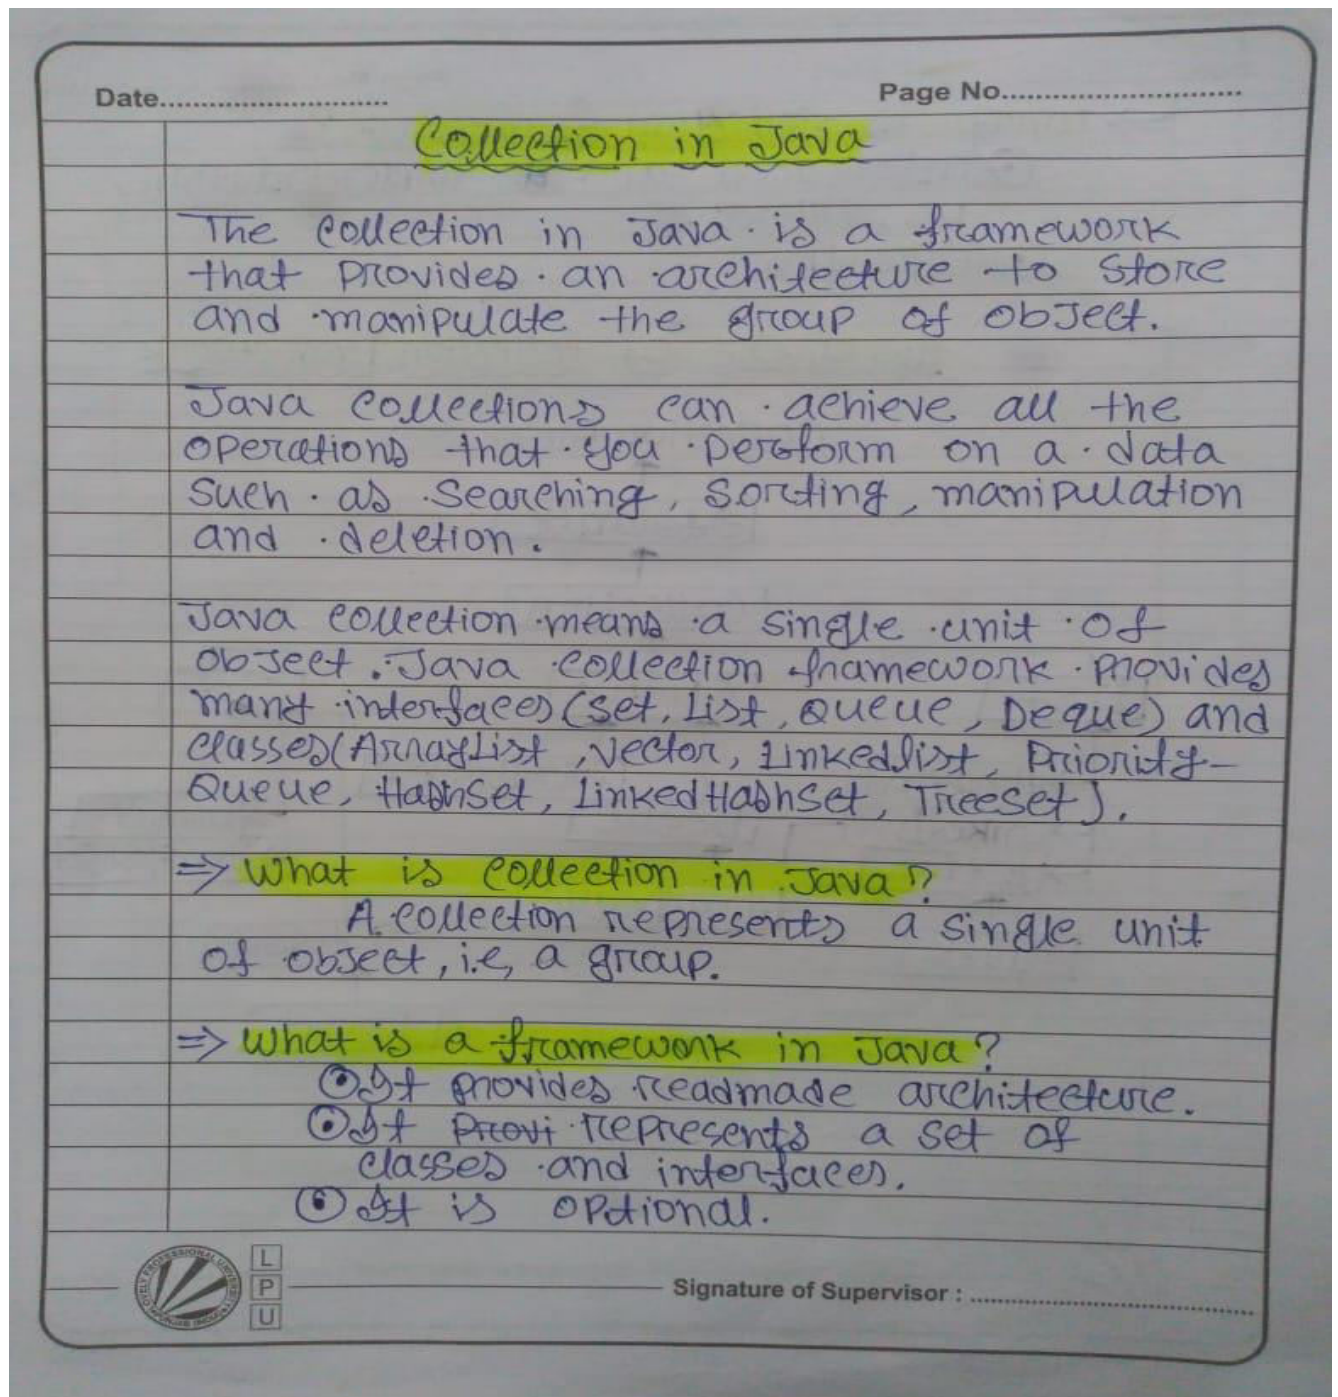 Date..............................
Page No..............................
Collection in Java
The collection in Java is a framework
that provides an architecture to store
and manipulate the group of object.
Java collections can achieve all the
operations that you perform on a data
such as searching, sorting, manipulation
and deletion.
Java collection means a single unit of
object. Java collection framework provides
many interfaces (Set, List, Queue, Deque) and
classes (ArrayList, Vector, Linkedlist, Priority-
Queue, HashSet, LinkedHashSet, TreeSet).
⇒ What is collection in Java?
A collection represents a single unit
of object, i.e, a group.
⇒ What is a framework in Java?
⦿ It provides readmade architecture.
⦿ It Provi represents a set of
classes and interfaces.
⦿ It is optional.
LOVELY PROFESSIONAL UNIVERSITY
L
P
U
Signature of Supervisor : ..............................